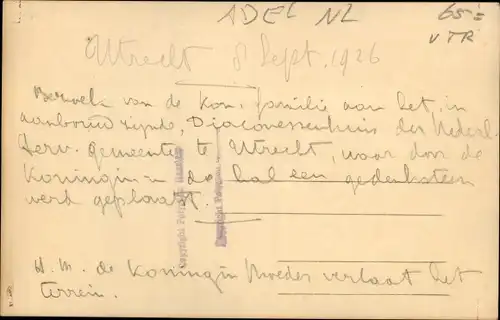 ADEL NL
65=
VTR
Utrecht 8 Sept. 1926
Bezoek van de Kon. familie aan het in
aanbouw zijnde, Diaconessenhuis der Nederl.
Herv. gemeente te Utrecht, waar door de
Koningin in de hal een gedenksteen
werd geplaatst.
H. M. de Koningin Moeder verlaat het
terrein.